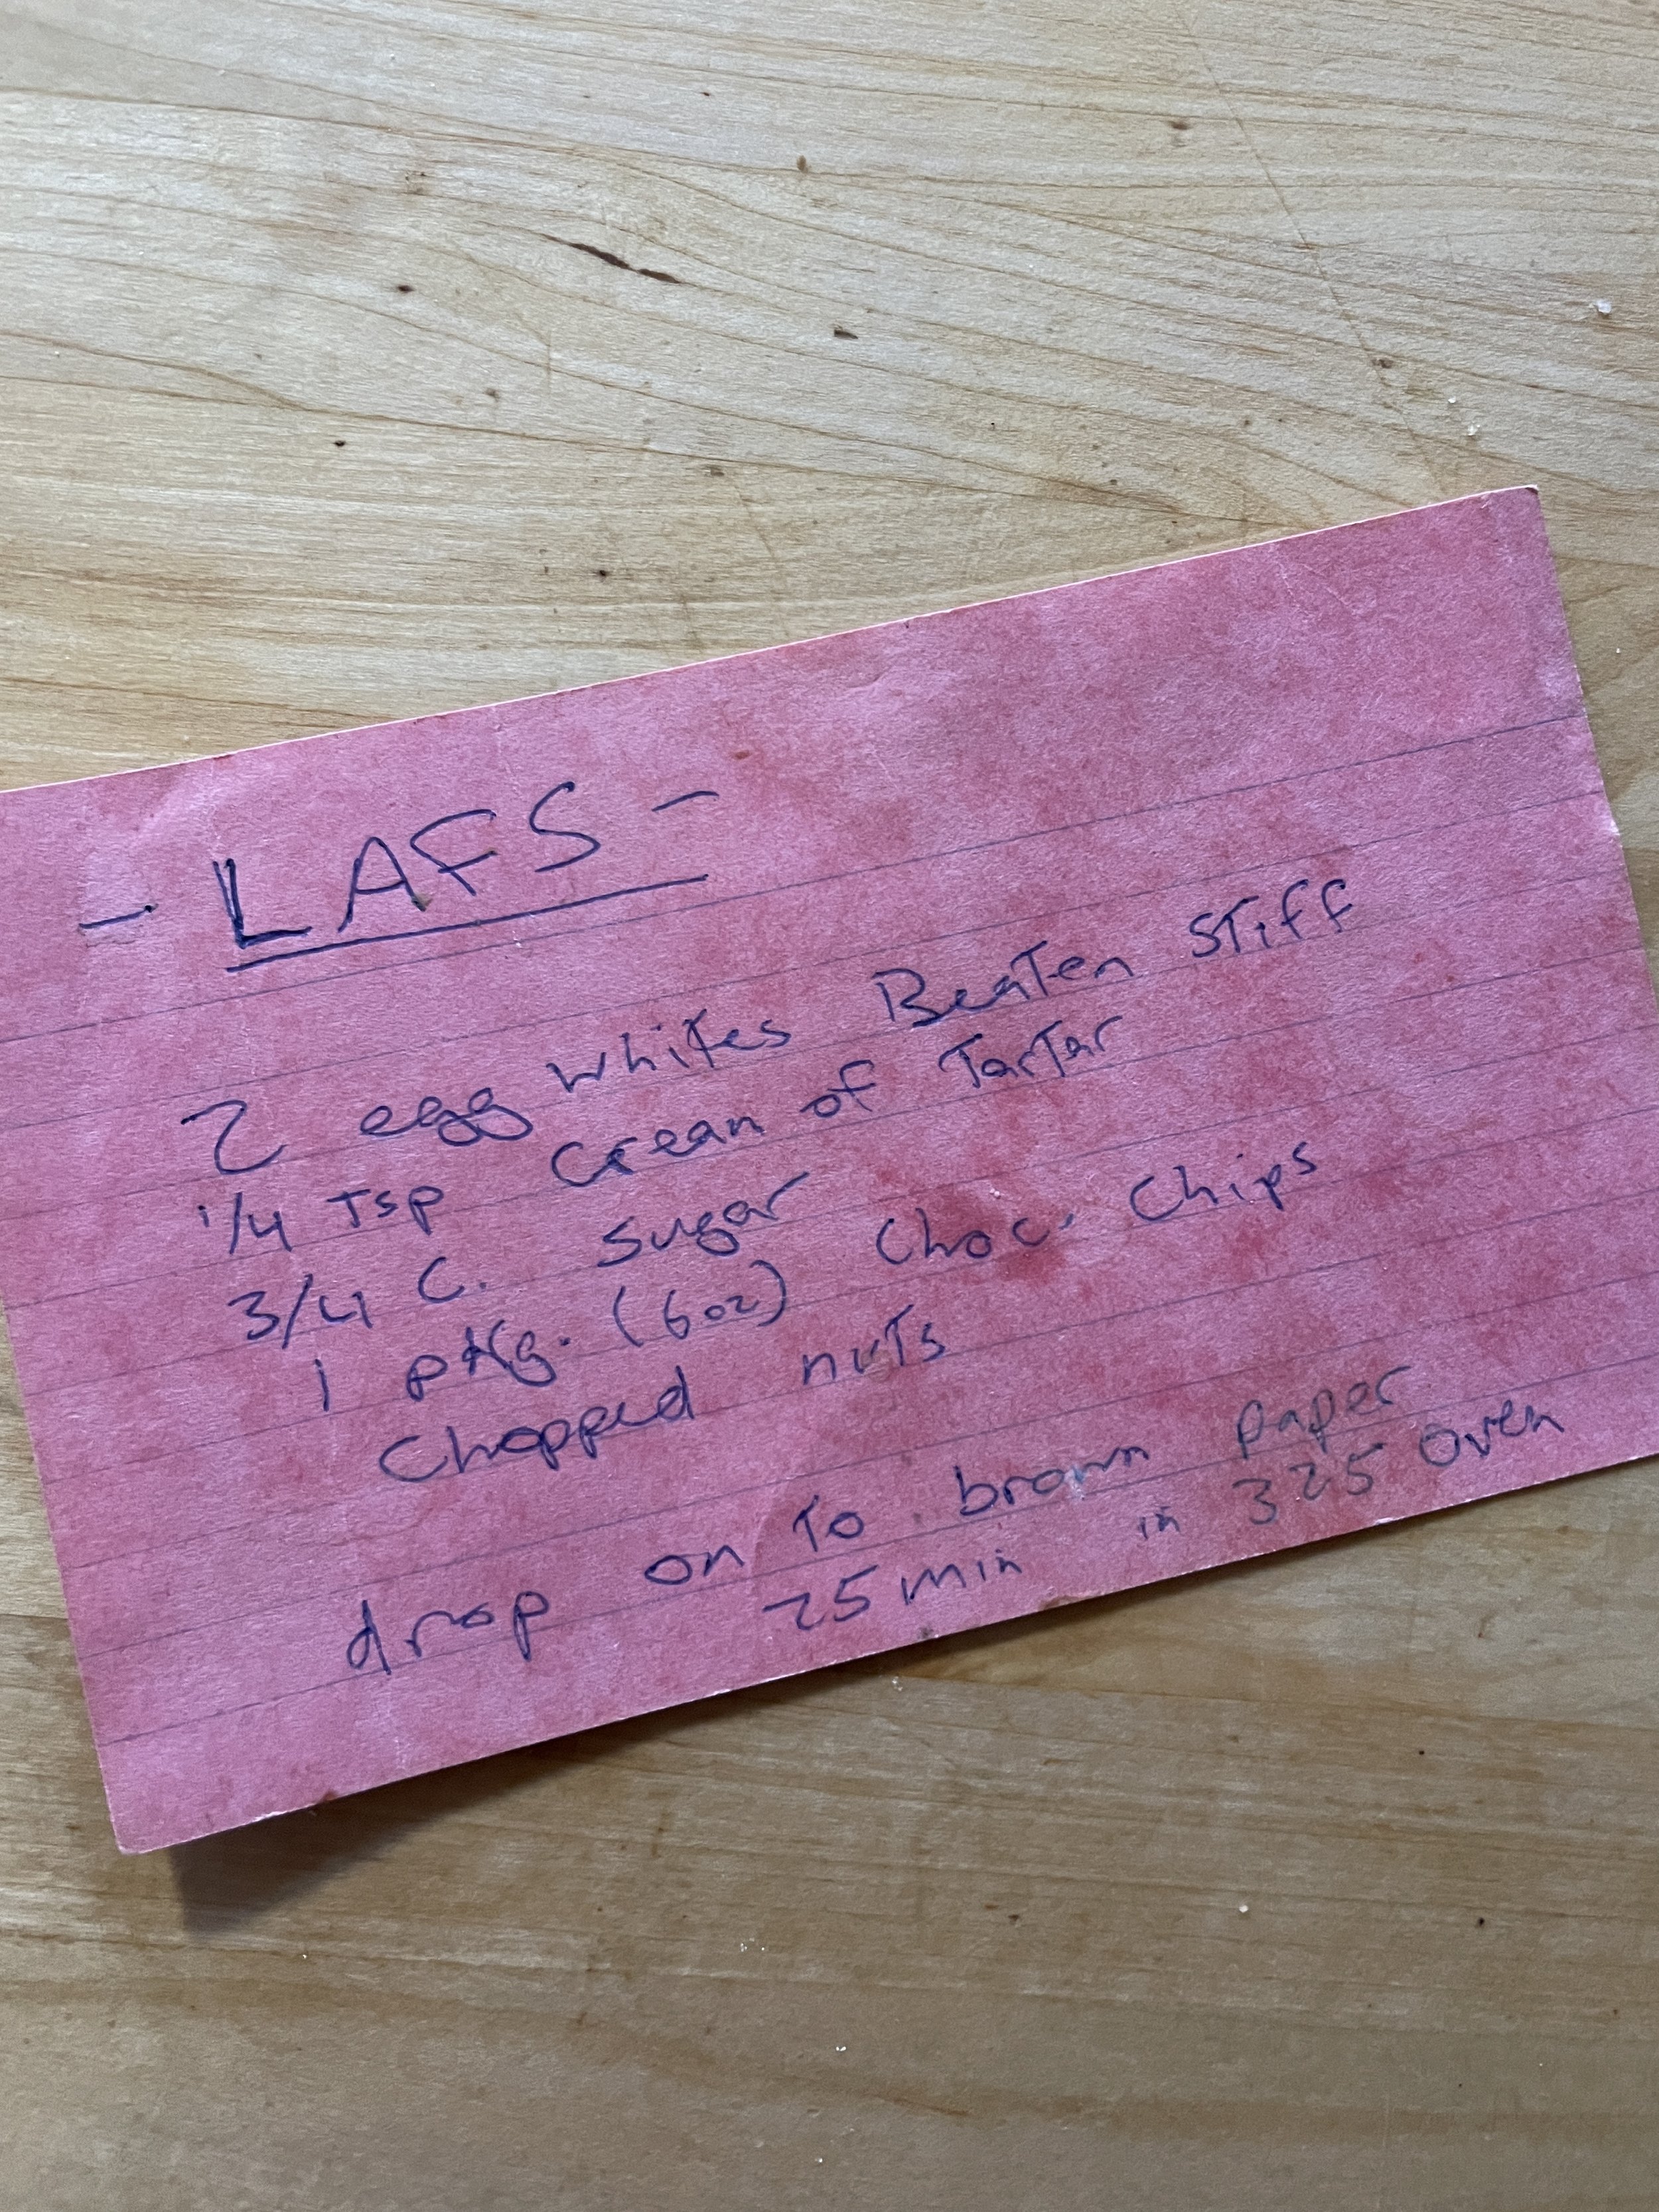 - LAFS -
2 egg whites Beaten stiff
1/4 Tsp cream of Tarter
3/4 C. sugar
1 pkg. (6oz) Choc. Chips
Chopped nuts
drop on To brown paper
25 min in 325 oven